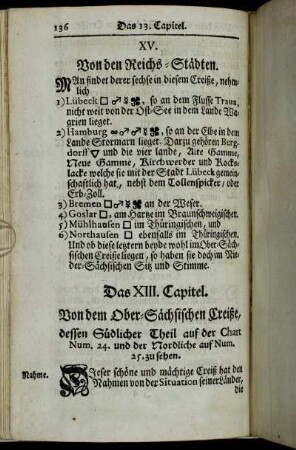 136 Das 13. Capitel.
XV.
Von den Reichs-Städten.
MAn findet derer sechse in diesem Creiße, nehmlich
1) Lübeck □ ♂ , so an dem Flusse Traun,
nicht weit von der Ost-See in dem Lande Wa-
grien lieget.
2) Hamburg ∞ ♂ , so an der Elbe in dem
Lande Stormarn lieget. Darzu gehören Berg-
dorff ▽ und die vier lande, Alte Gamme,
Neue Gamme, Kirchwerder und Kocks-
lacke welche sie mit der Stadt Lübeck gemein-
schaftlich hat, nebst dem Tollenspicker, oder
Erb-Zoll.
3) Bremen □ ♂ an der Weser.
4) Goslar □, am Hartze im Braunschweigischen.
5) Mühlhausen □ im Thüringischen, und
6) Northausen □ ebenfals im Thüringischen.
Und ob diese letztern beyde wohl im Ober-Säch-
sischen Creiße liegen, so haben sie doch im Nie-
der-Sächsischen Sitz und Stimme.
Das XIII. Capitel.
Von dem Ober-Sächsischen Creiße,
dessen Südlicher Theil auf der Chart
Num. 24. und der Nordliche auf Num.
25. zu sehen.
Nahme. DIeser schöne und mächtige Creiß hat den
Nahmen von der Situation seiner Länder,
die